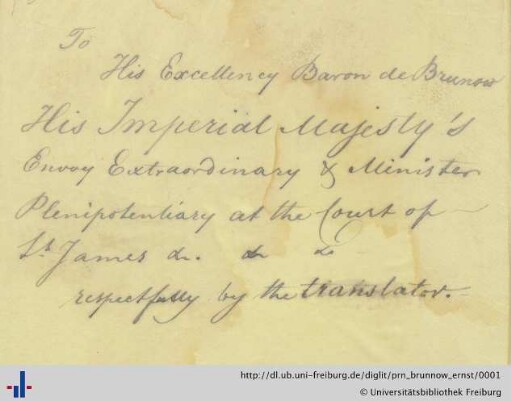 To
His Excellency Baron de Brunow
His Imperial Majesty's
Envoy Extraordinary & Minister
Plenipotentiary at the Court of
St James &. & &
respectfully by the translator.
http://dl.ub.uni-freiburg.de/diglit/prn_brunnow_ernst/0001
© Universitätsbibliothek Freiburg